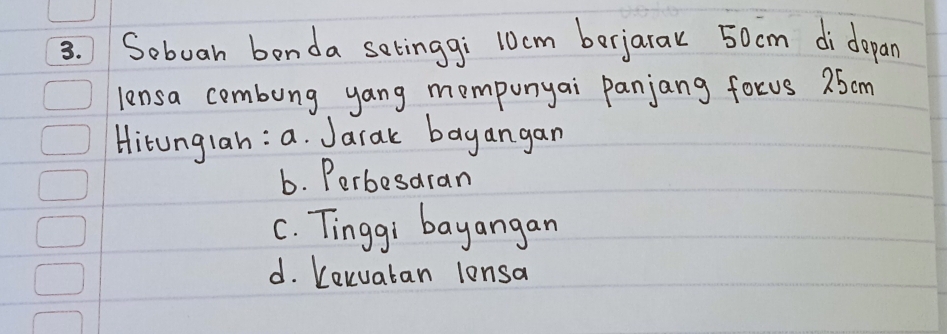 3. Sebuah benda setinggi 10cm berjarak 50cm di depan
lensa cembung yang mempunyai panjang fokus 25cm
Hitunglah : a. Jarak bayangan
b. Perbesaran
c. Tinggi bayangan
d. Kekuatan lensa